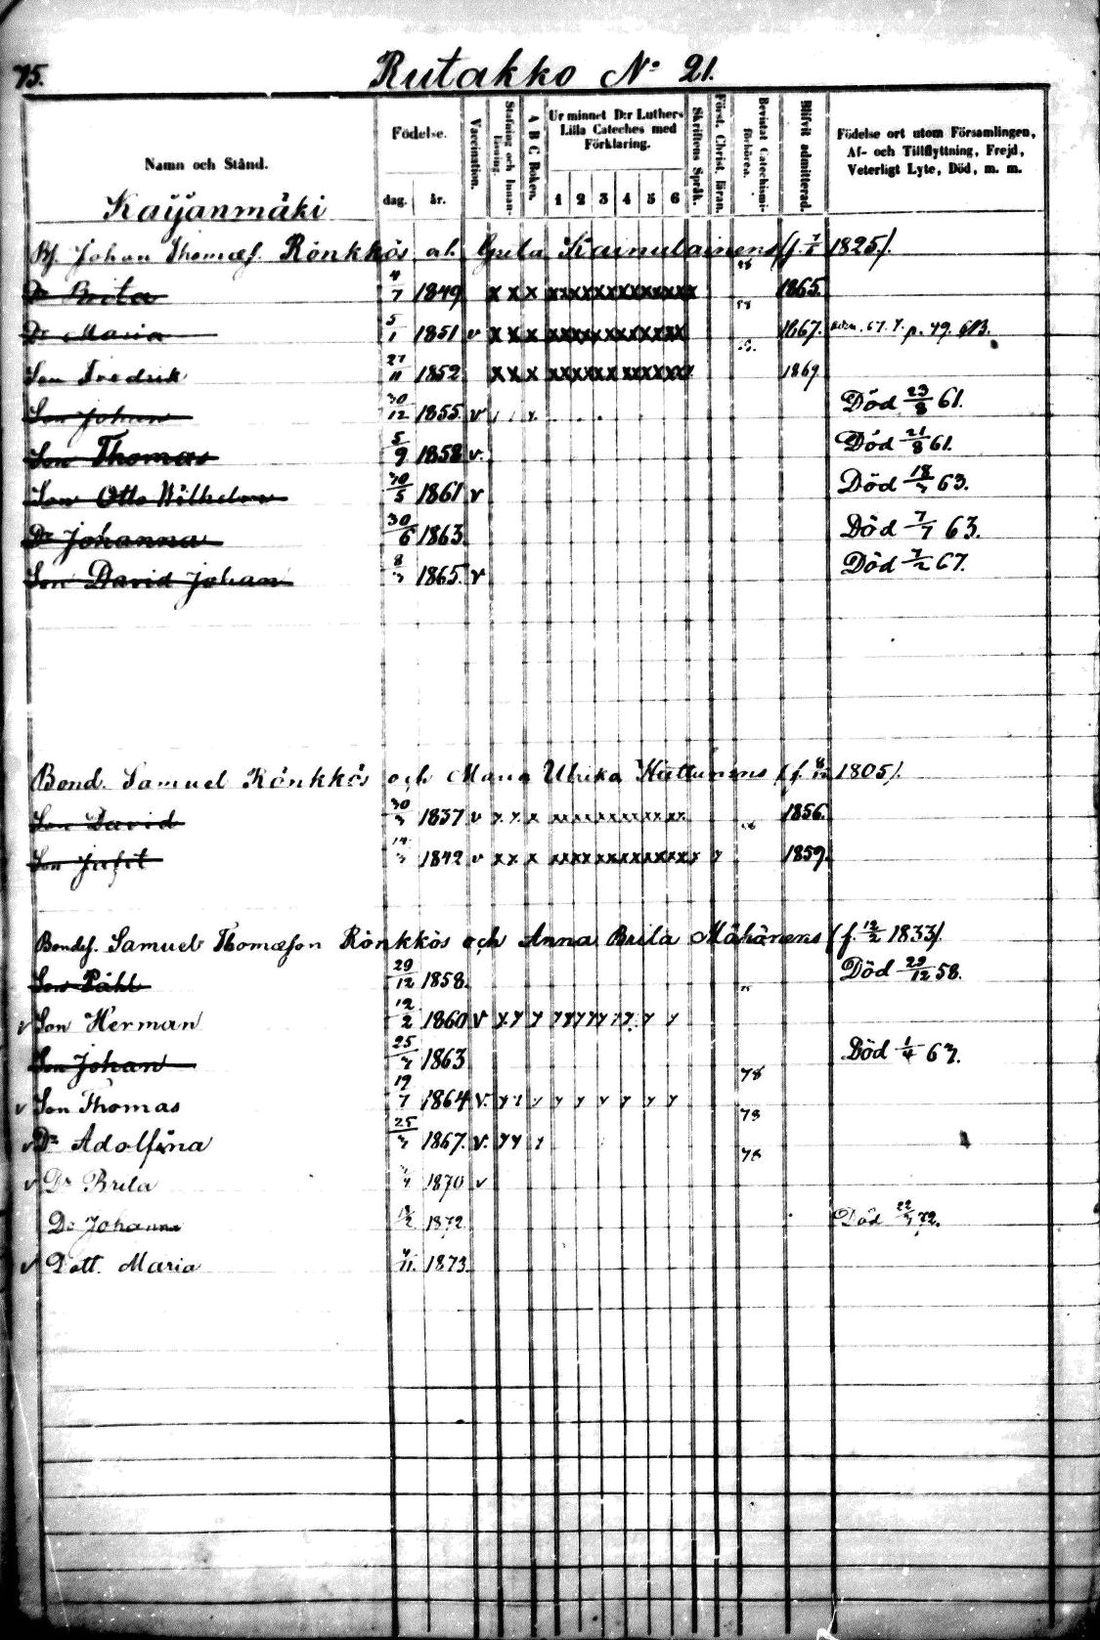 75. Rutakko No 21.
Namn och Stånd.
Födelse.
dag. år.
Vaccination.
Stafning och Innanläsning.
A B C Boken.
Ur minnet D:r Luthers Lilla Cateches med Förklaring.
1 2 3 4 5 6
Skriftens Språk.
Först. Christ. läran.
Bevistat Catechismiförhören.
Blifvit admitterad.
Födelse ort utom Församlingen, Af- och Tillflyttning, Frejd, Veterligt Lyte, Död, m. m.
Kayanmäki
Johan Thomæs. Rönkkös och Greta Kainulainens (f. 1825).
Dr Brita 4/7 1849 x x x xxxxxxxxxxxxx 1865.
Dr Maria 5/1 1851 v x x x xxxxxxxxxxxx 1667. 67. p. 79.
Son Fredrik 27/11 1852 x x x xxxxxxxxxxxx 1869
Son Johan 30/12 1855 v Död 23/8 61.
Son Thomas 5/9 1858 v. Död 21/8 61.
Son Otto Wilhelm 30/5 1861 v Död 18/3 63.
Dr Johanna 30/6 1863. Död 7/7 63.
Son David Johan 8/3 1865. v Död 7/2 67.
Bond. Samuel Rönkkös och Maria Ulrika Hattunens (f. 1805).
Son David 30/3 1837 v x x x xxxxxxxxxxxx 1856.
Son 1842 v x x x xxxxxxxxxxxxx 1859.
Bondes. Samuel Thomæson Rönkkös och Anna Brita Mähönens (f. 12/2 1833).
Son Påhl 29/12 1858. Död 29/12 58.
v Son Herman 12/2 1860 v
Son Johan 25/3 1863 Död 1/4 63.
78
v Son Thomas 19/7 1864 v.
78
v Dr Adolfina 25/3 1867. v.
78
v Dr Brita 1870 v
Dr Johanna 1872. Död 72.
v Dott. Maria 1873.